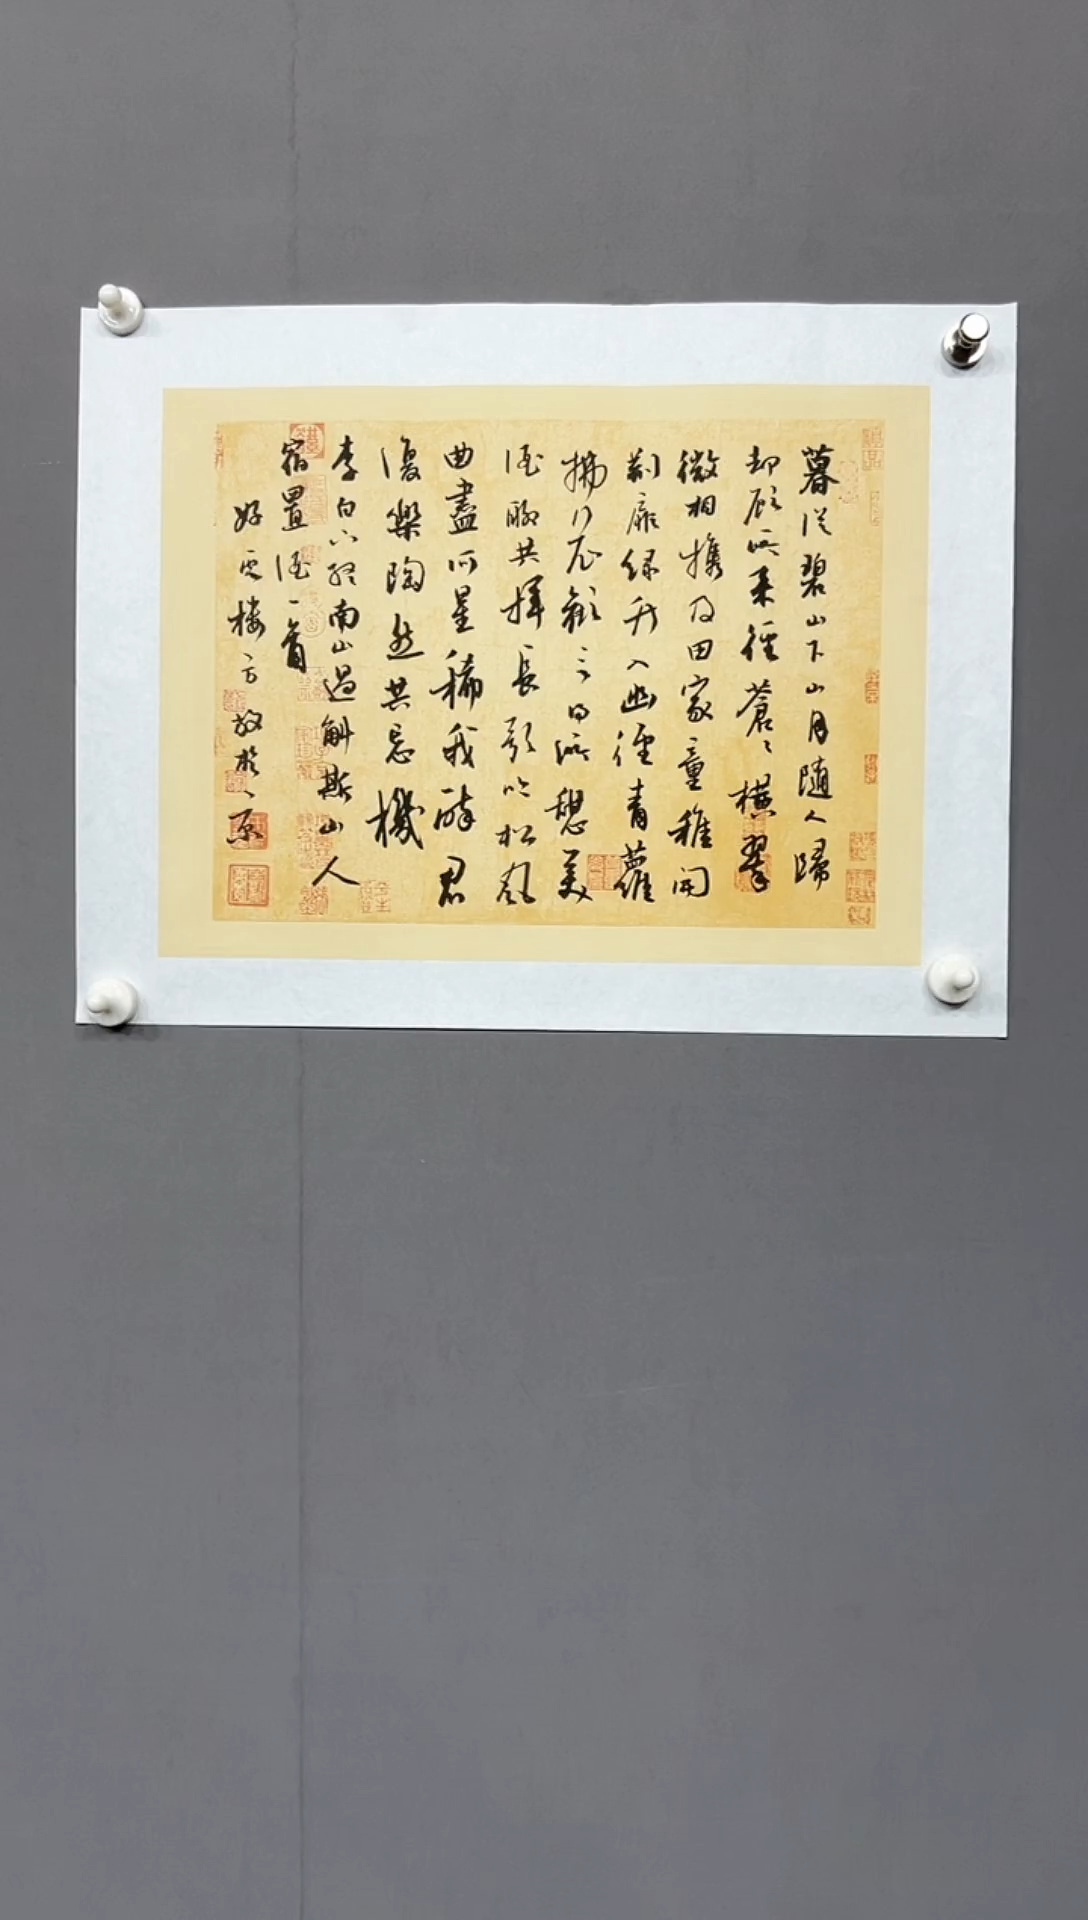 暮從碧山下山月隨人歸
却顧所來徑蒼〻橫翠
微相攜及田家童稚開
荊扉綠竹入幽徑青蘿
拂行衣歡言得所憩美
酒聊共揮長歌吟松風
曲盡河星稀我醉君
復樂陶然共忘機
李白下終南山過斛斯山人
宿置酒一首
好樓